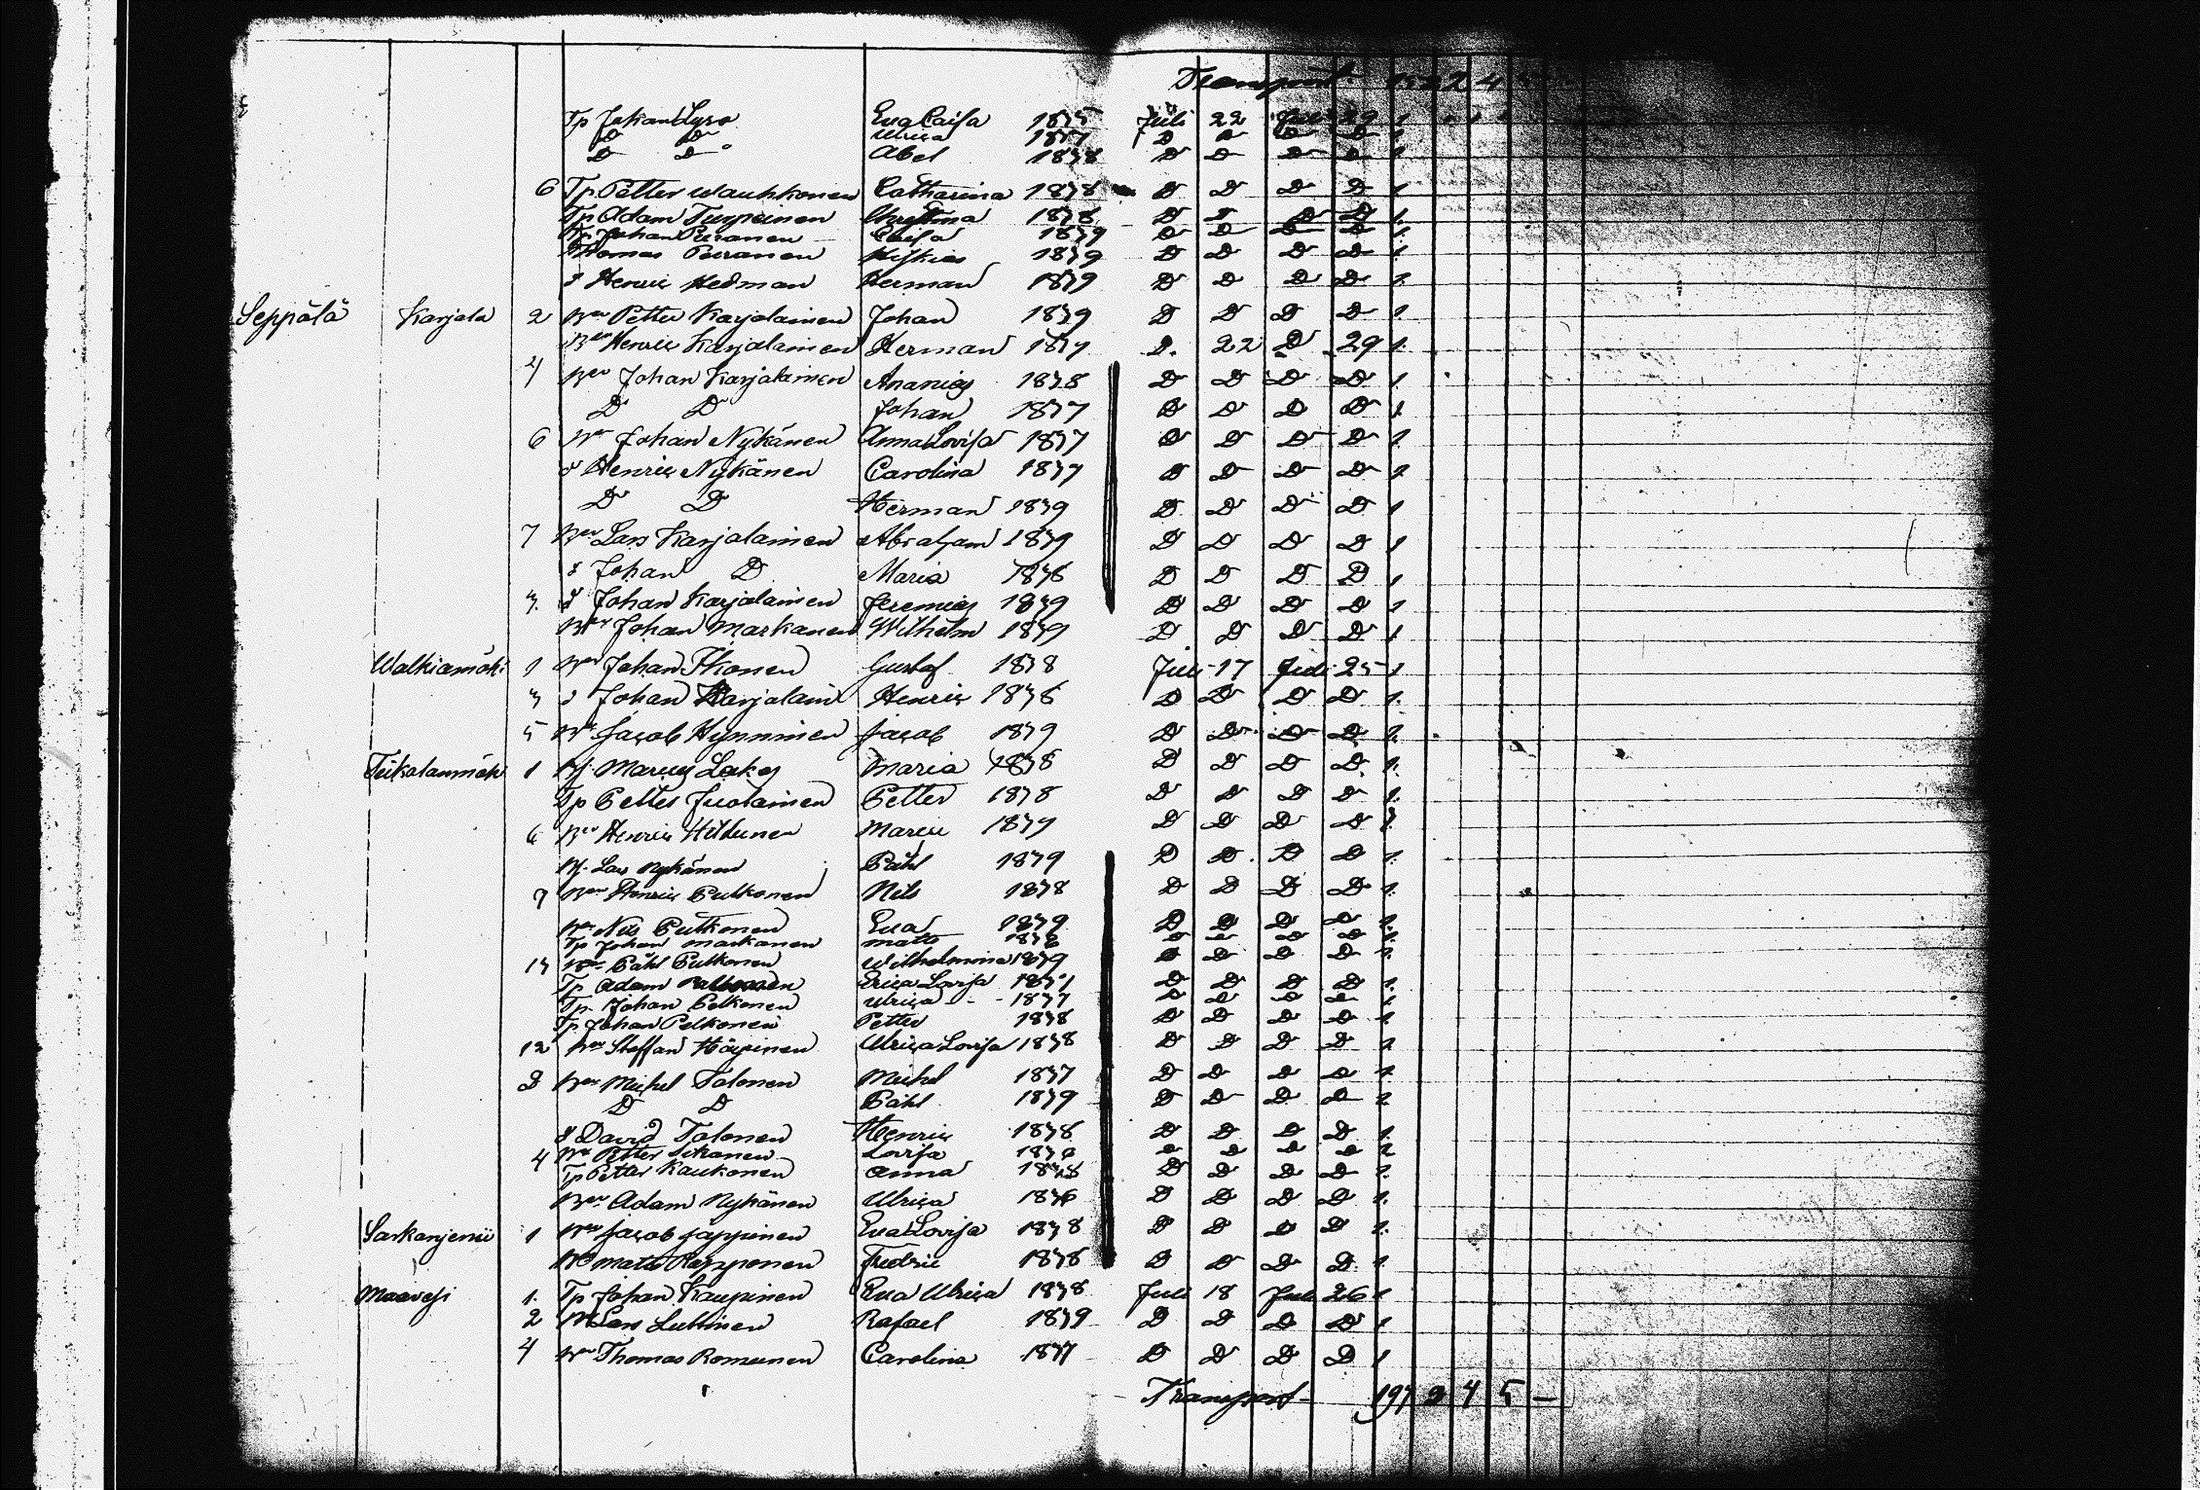 Transport
Tp Johan Lyra Eva Caisa 1835 Juli 22 Juli 29 1
D D Ulrica 1837 D D D D 1
D D Abel 1838 D D D D 1
6 Tp Petter Wauhkonen Catharina 1838 D D D D 1
Tp Adam Turpeinen Christina 1838 D D D D 1
Tp Johan Piiranen Caisa 1839 D D D D 1
Thomas Piiranen 1839 D D D D 1
d Henric Hedman Herman 1839 D D D D 1
Seppälä Karjala 2 Bn Petter Karjalainen Johan 1839 D D D D 1
Bn Henric Karjalainen Herman 1839 D. 22 D 29 1
4 Bn Johan Karjalainen Ananias 1838 D D D D 1
D D Johan 1837 D D D D 1
6 Bn Johan Nykänen Anna Lovisa 1837 D D D D 1
d Henric Nykänen Carolina 1837 D D D D 1
D D Herman 1839 D D D D 1
7 Bn Lars Karjalainen Abraham 1839 D D D D 1
d Johan D Maria 1836 D D D D 1
3. d Johan Karjalainen Jeremias 1839 D D D D 1
Bn Johan Markanen Wilhelm 1839 D D D D 1
Walkiamäki 1 Bn Johan Ikonen Gustaf 1838 Juli 17 Juli 25 1
3 d Johan Karjalain Henric 1836 D D D D 1.
5 Bn Jacob Hynninen Jacob 1839 D D D D 1.
Tiikalanmäki 1 Hj Marcus Lakas Maria 1838 D D D D 1.
Tp Petter Juolainen Petter 1838 D D D D 1.
6 Bn Henric Hildunen Marcus 1839 D D D D 1.
Hj. Lars Nykänen Påhl 1839 D D D D 1.
9 Bn Henric Pulkonen Nils 1838 D D D D 1.
Bn Nils Pulkonen Eva 1839 D D D D 1.
Tp Johan Markanen Matts 1838 D D D D 1.
Bn Påhl Pulkonen Wilhelmina 1839 D D D D 1.
Tp Adam Erica Lovisa D D D D 1.
Tp Johan Pelkonen Ulrica 1837 D D D D 1.
Tp Johan Pelkonen Petter 1838 D D D D 1
12 Bn Staffan Höylinen Ulrica Lovisa 1838 D D D D 1
2 Bn Michel Tolonen Michel 1837 D D D D 1.
D D Påhl 1839 D D D D 1
d David Tolonen Henric 1838 D D D D 1.
4 Bn Petter Lovisa D D D D 1
Tp Petter Kaukonen Anna 1838 D D D D 1.
Bn Adam Nykänen Ulrica 1836 D D D D 1.
Sarkanjemi 1 Bn Jacob Jäppinen Eva Lovisa 1838 D D D D 1.
Bn Matts Räpponen Fredric 1836 D D D D 1.
Maavesi 1. Tp Johan Kaupinen Eva Ulrica 1838 Juli 18 Juli 26 1
2 Bn Lars Luttinen Rafael 1839 D D D D 1
4 Bn Thomas Romunen Carolina 1837 D D D D 1
Transport 197 3 4 5 —